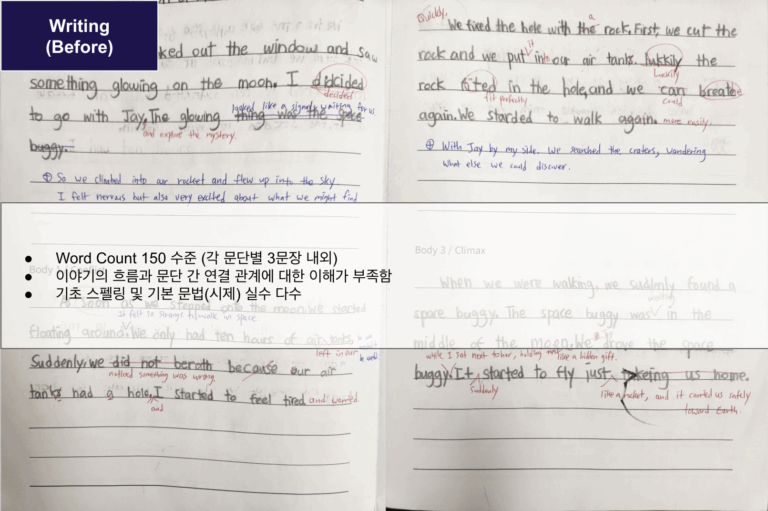 Writing
(Before)
ked out the window and saw
something glowing on the moon. I dicided
decided
looked like a signal, waiting for us
to go with Jay. The glowing thing was the space
and explore the mystery.
buggy.
⊕ So we climbed into air rocket and flew up into the sky
I felt nervous but also very excited about what we might find
Word Count 150 수준 (각 문단별 3문장 내외)
이야기의 흐름과 문단 간 연결 관계에 대한 이해가 부족함
기초 스펠링 및 기본 문법(시제) 실수 다수
As soon as we stepped onto the moon, we started
It felt so strange to walk in space.
floating around. We only had ten hairs of air tank
left in our
Suddenly, we did not berath because our air
noticed something was wrong.
tanks had a hole, I started to feel tired and worried.
and
Quickly,
We fixed the hole with the rock. First, we cut the
a
rock and we put in our air tank. lukkily the
it
Luckily
rock fitted in the hole, and we can breate
fit perfectly
could
again. We starded to walk again. more easily.
⊕ With Jay by my side. We searched the craters, wondering
what else we could discover.
Body 3 / Climax
When we were walking, we suddenly found a
spare buggy. The space buggy was in the
waiting
middle of the moon. We drove the space
while I sat next to her, holding like a hidden gift.
buggy. It started to fly just takeing us home.
Suddenly
like a rocket, and it carried us safely
toward Earth.